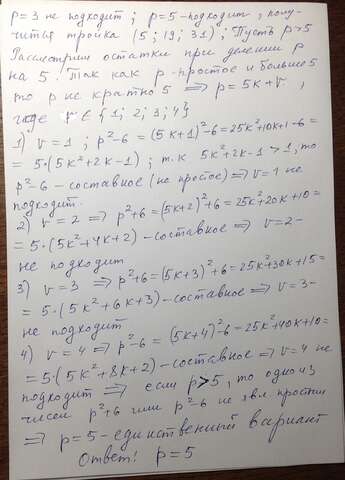 p=3 не подходит; p=5-подходит, полу-
чится тройка (5; 19; 31); Пусть p>5
Рассмотрим остатки при делении p
на 5. Так как p-простое и больше 5
то p не кратно 5 ⇒ p=5k+v,
где v ∈ {1; 2; 3; 4}
1) v=1; p²-6=(5k+1)²-6=25k²+10k+1-6=
=5·(5k²+2k-1); т.к 5k²+2k-1>1, то
p²-6-составное (не простое) ⇒ v=1 не
подходит.
2) v=2 ⇒ p²+6=(5k+2)²+6=25k²+20k+10=
=5·(5k²+4k+2)-составное ⇒ v=2-
не подходит
3) v=3 ⇒ p²+6=(5k+3)²+6=25k²+30k+15=
=5·(5k²+6k+3)-составное ⇒ v=3-
не подходит
4) v=4 ⇒ p²-6=(5k+4)²-6=25k²+40k+10=
=5·(5k²+8k+2)-составное ⇒ v=4 не
подходит ⇒ если p>5, то одно из
чисел p²+6 или p²-6 не явл простым
⇒ p=5-единственный вариант
Ответ! p=5